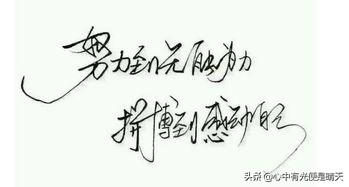 努力到无能为力
拼搏到感动自己
头条@心中有光便是晴天